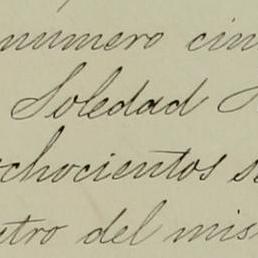 numero cin
Soledad
chocientos s
tro del mis